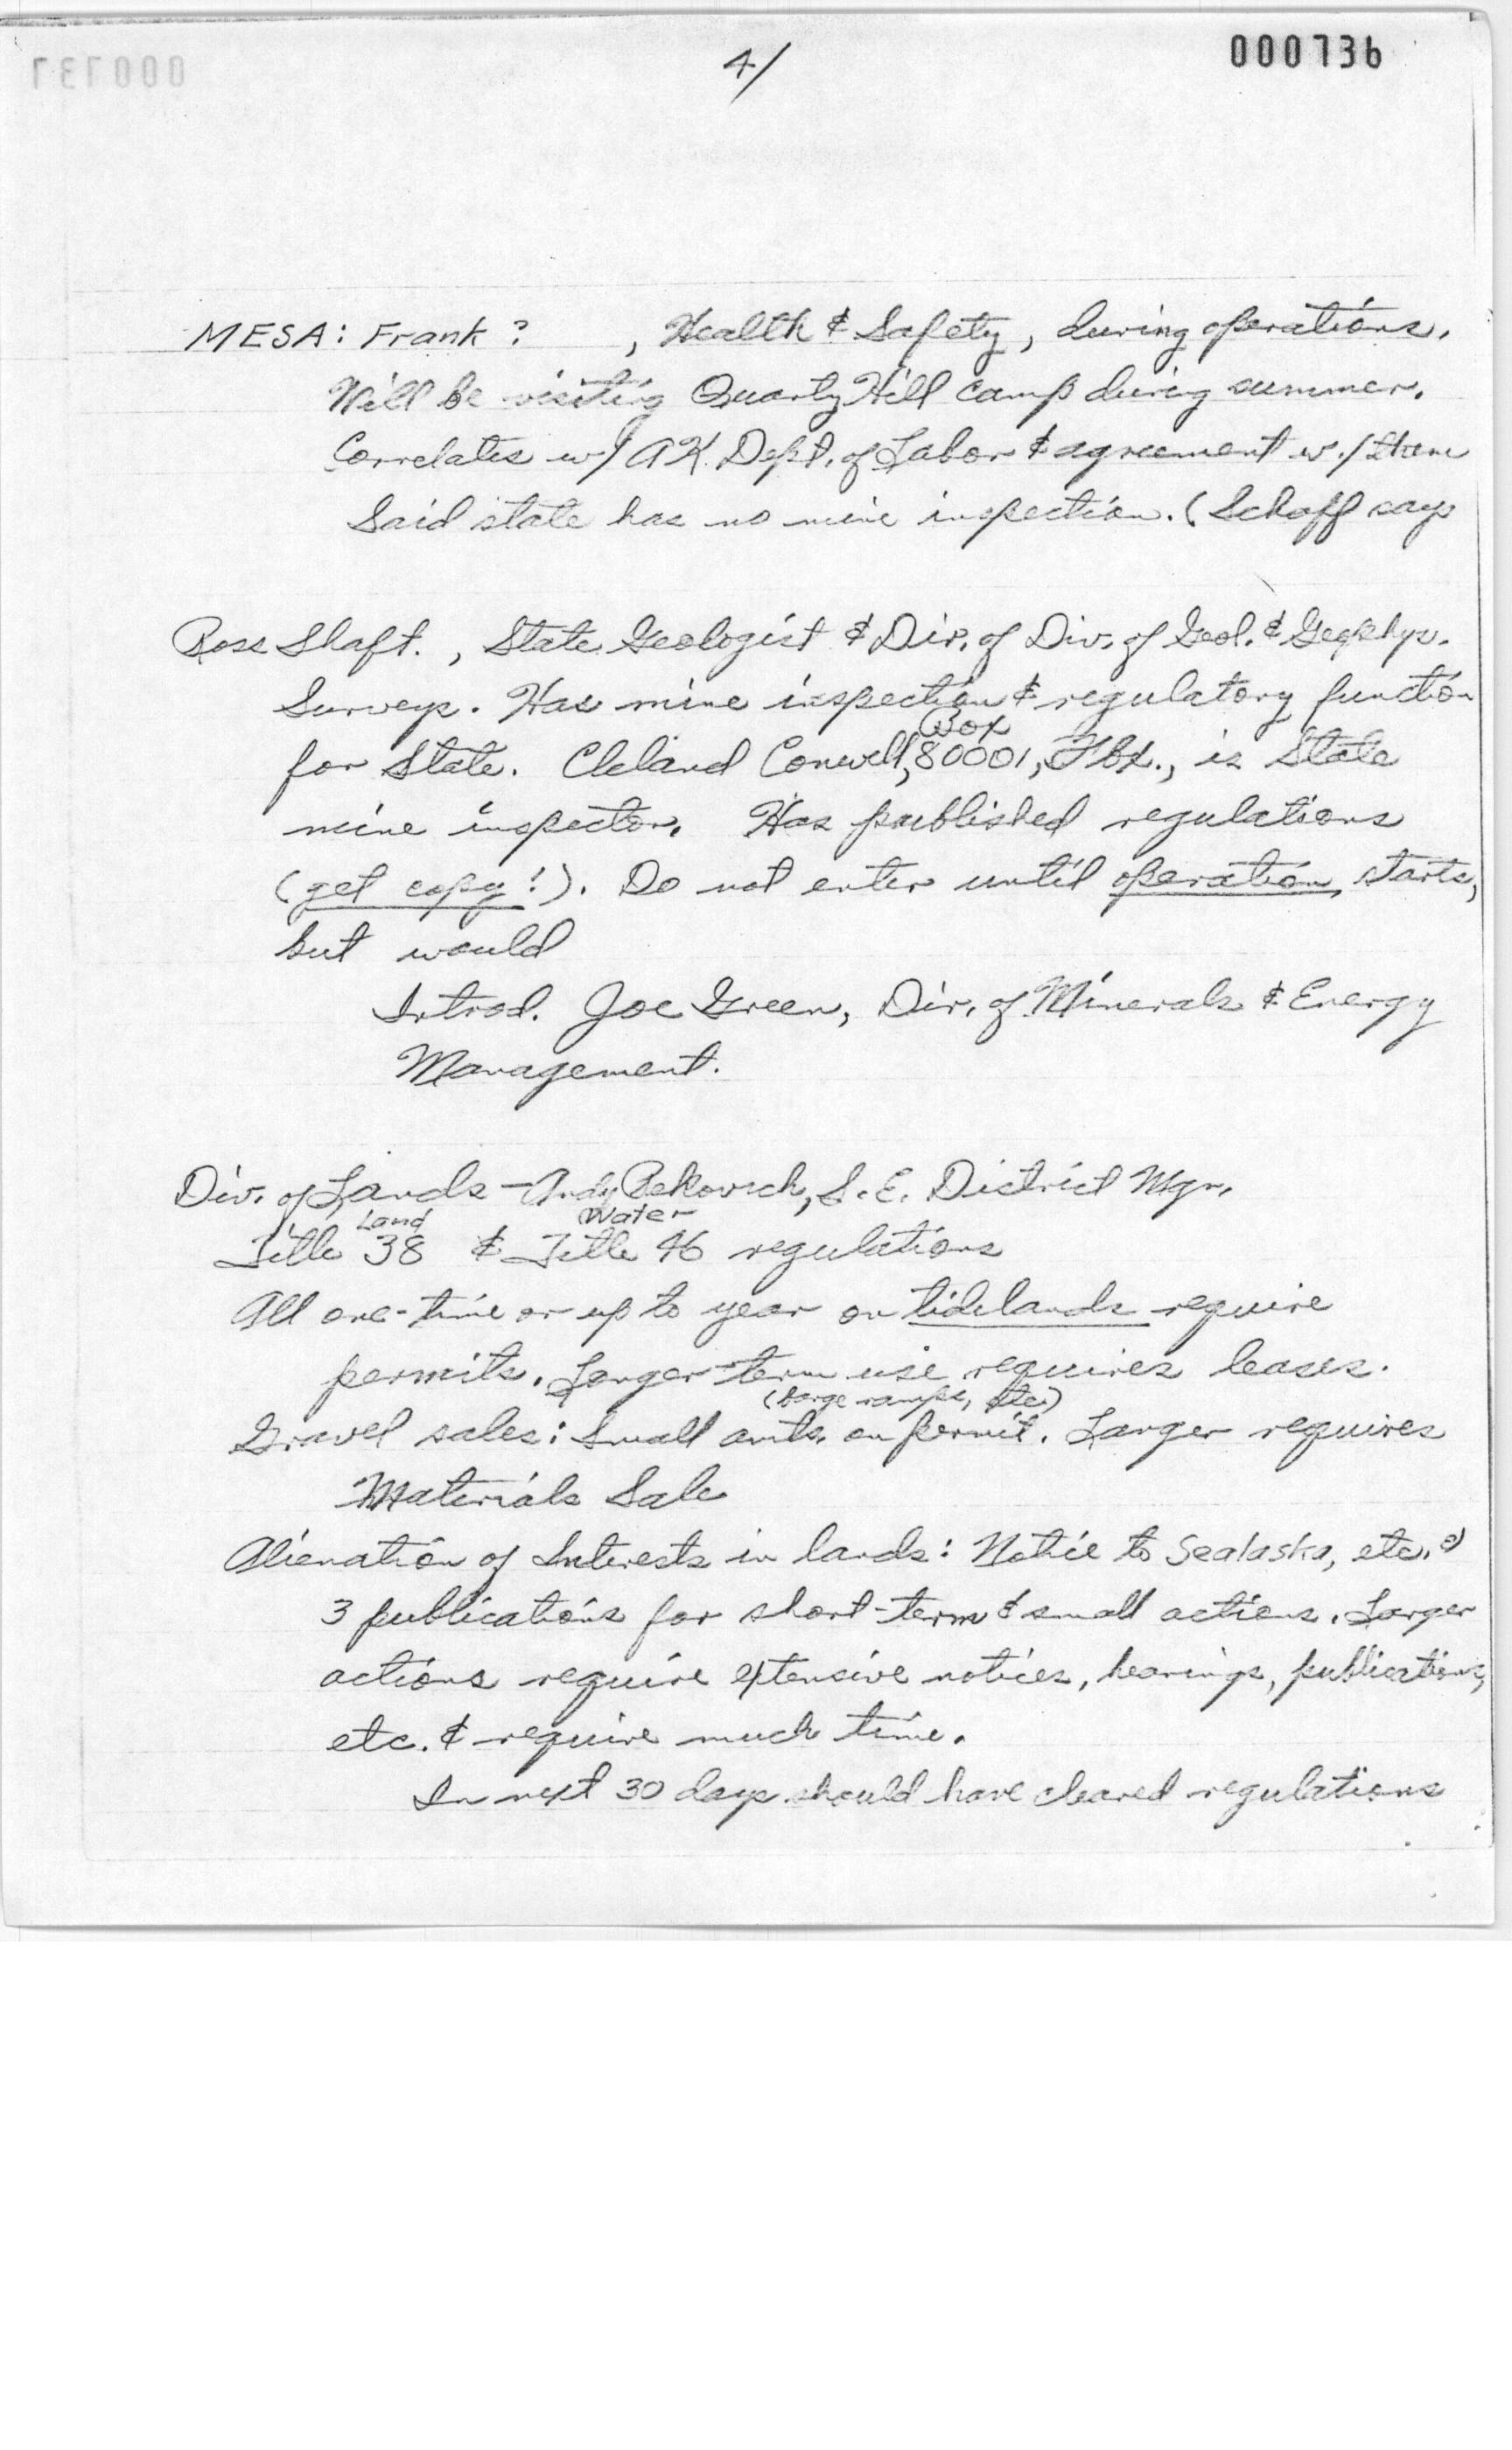 4/
000736
MESA: Frank ? , Health & Safety, during operations.
Will be visiting Quartz Hill camp during summer.
Correlates w/ AK Dept. of Labor & agreement w./ them
Said state has no mine inspection. (Schaff says
Ross Shaft. , State Geologist & Dir. of Div. of Geol. & Geophys.
Surveys. Has mine inspection & regulatory function
Box
for State. Cleland Conwell, 80001, Fbx., is State
mine inspector. Has published regulations
(get copy!). Do not enter until operation starts,
but would
Introd. Joe Green, Dir. of Minerals & Energy
Management.
Div. of Lands - Andy Pekovich, S.E. District Mgr.
Land Water
Title 38 & Title 46 regulations
All one-time or up to year on tidelands require
permits. Longer-term use requires leases.
(barge ramps, etc.)
Gravel sales: Small amts. on permit. Larger requires
Materials Sale
Alienation of Interests in lands: Notice to Sealaska, etc. &
3 publications for short-term & small actions. Larger
actions require extensive notices, hearings, publications,
etc. & require much time.
In next 30 days should have cleared regulations